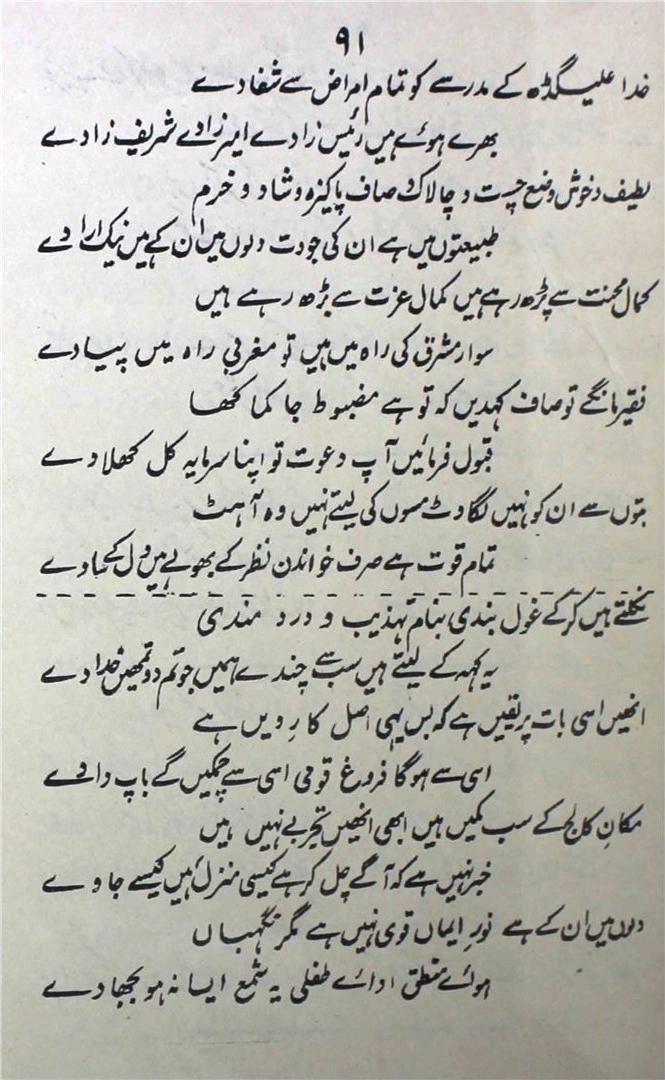 ۹۱
خدا علیگڈھ کے مدرسے کو تمام امراض سے شفا دے
بھرے ہوئے ہیں رئیس زادے امیر زادے شریف زادے
لطیف و خوش وضع چست و چالاک و صاف پاکیزہ و شاد و خرم
طبیعتوں میں ہے ان کی جودت دلوں میں ان کے ہیں نیک ارادے
کمال محنت سے پڑھ رہے ہیں کمال عزت سے بڑھ رہے ہیں
سوار مشرق کی راہ میں ہیں تو مغربی راہ میں پیادے
فقیر مانگے تو صاف کہدیں کہ تو ہے مضبوط جا کما کھا
قبول فرمائیں آپ دعوت تو اپنا سرمایہ کل کھلا دے
بتوں سے ان کو نہیں لگاوٹ مسوں کی لیتے نہیں وہ آہٹ
تمام قوت ہے صرف خواندن نظر کے بھولے ہیں دل کے سادے
نکلتے ہیں کر کے غول بندی بنام تہذیب و درد مندی
یہ کہہ کے لیتے ہیں سب سے چندے ہمیں جو تم دو تمھیں خدا دے
انھیں اسی بات پر یقیں ہے کہ بس یہی اصل کارِ دیں ہے
اسی سے ہوگا فروغ قومی اسی سے چمکیں گے باپ دادے
مکانِ کالج کے سب مکیں ہیں ابھی انھیں تجربے نہیں ہیں
خبر نہیں ہے کہ آگے چل کر ہے کیسی منزل ہیں کیسے جادے
دلوں میں ان کے ہے نورِ ایماں قوی نہیں ہے مگر نگہباں
ہوائے منطق ادائے طفلی یہ شمع ایسا نہ ہو بجھا دے